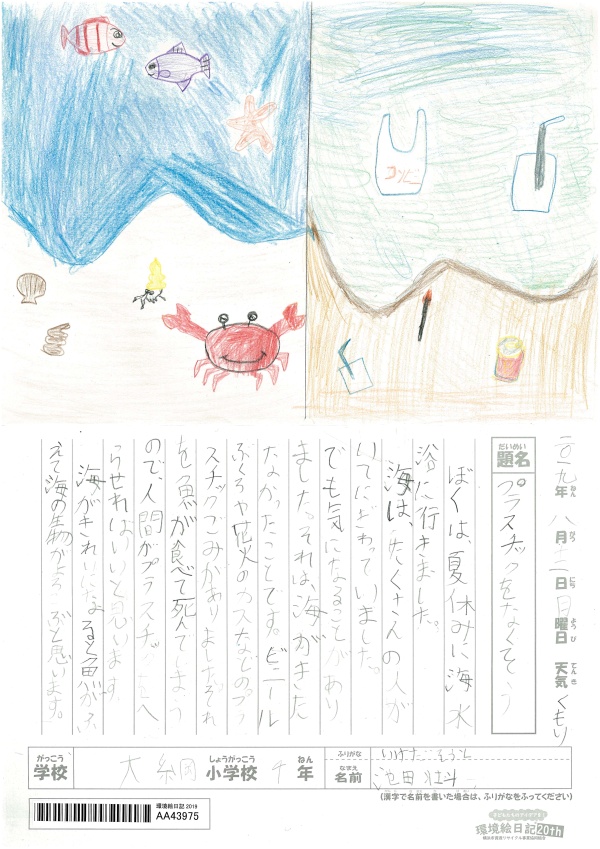 コンビニ
二〇一九年 八月十一日 日曜日 天気 くもり
ねん がつ にち ようび てんき
だいめい
題名 プラスチックをなくそう
ぼくは、夏休みに海水
浴に行きました。
海は、たくさんの人が
いてにぎわっていました。
でも気になることがあり
ました。それは、海がきた
なかったことです。ビニール
ぶくろや花火のカスなどのプラ
スチックごみがありました。それ
を魚が食べて死んでしまう
ので、人間がプラスチックをへ
らせればいいと思います。
海がきれいになると魚がふ
えて海の生物がよろこぶと思います。
がっこう
学校 大綱 しょうがっこう 小学校 4 ねん 年
ふりがな いけだ そうと
なまえ
名前 池田 壮斗
(漢字で名前を書いた場合は、ふりがなをふってください)
環境絵日記 2019
AA43975
環境絵日記 20th